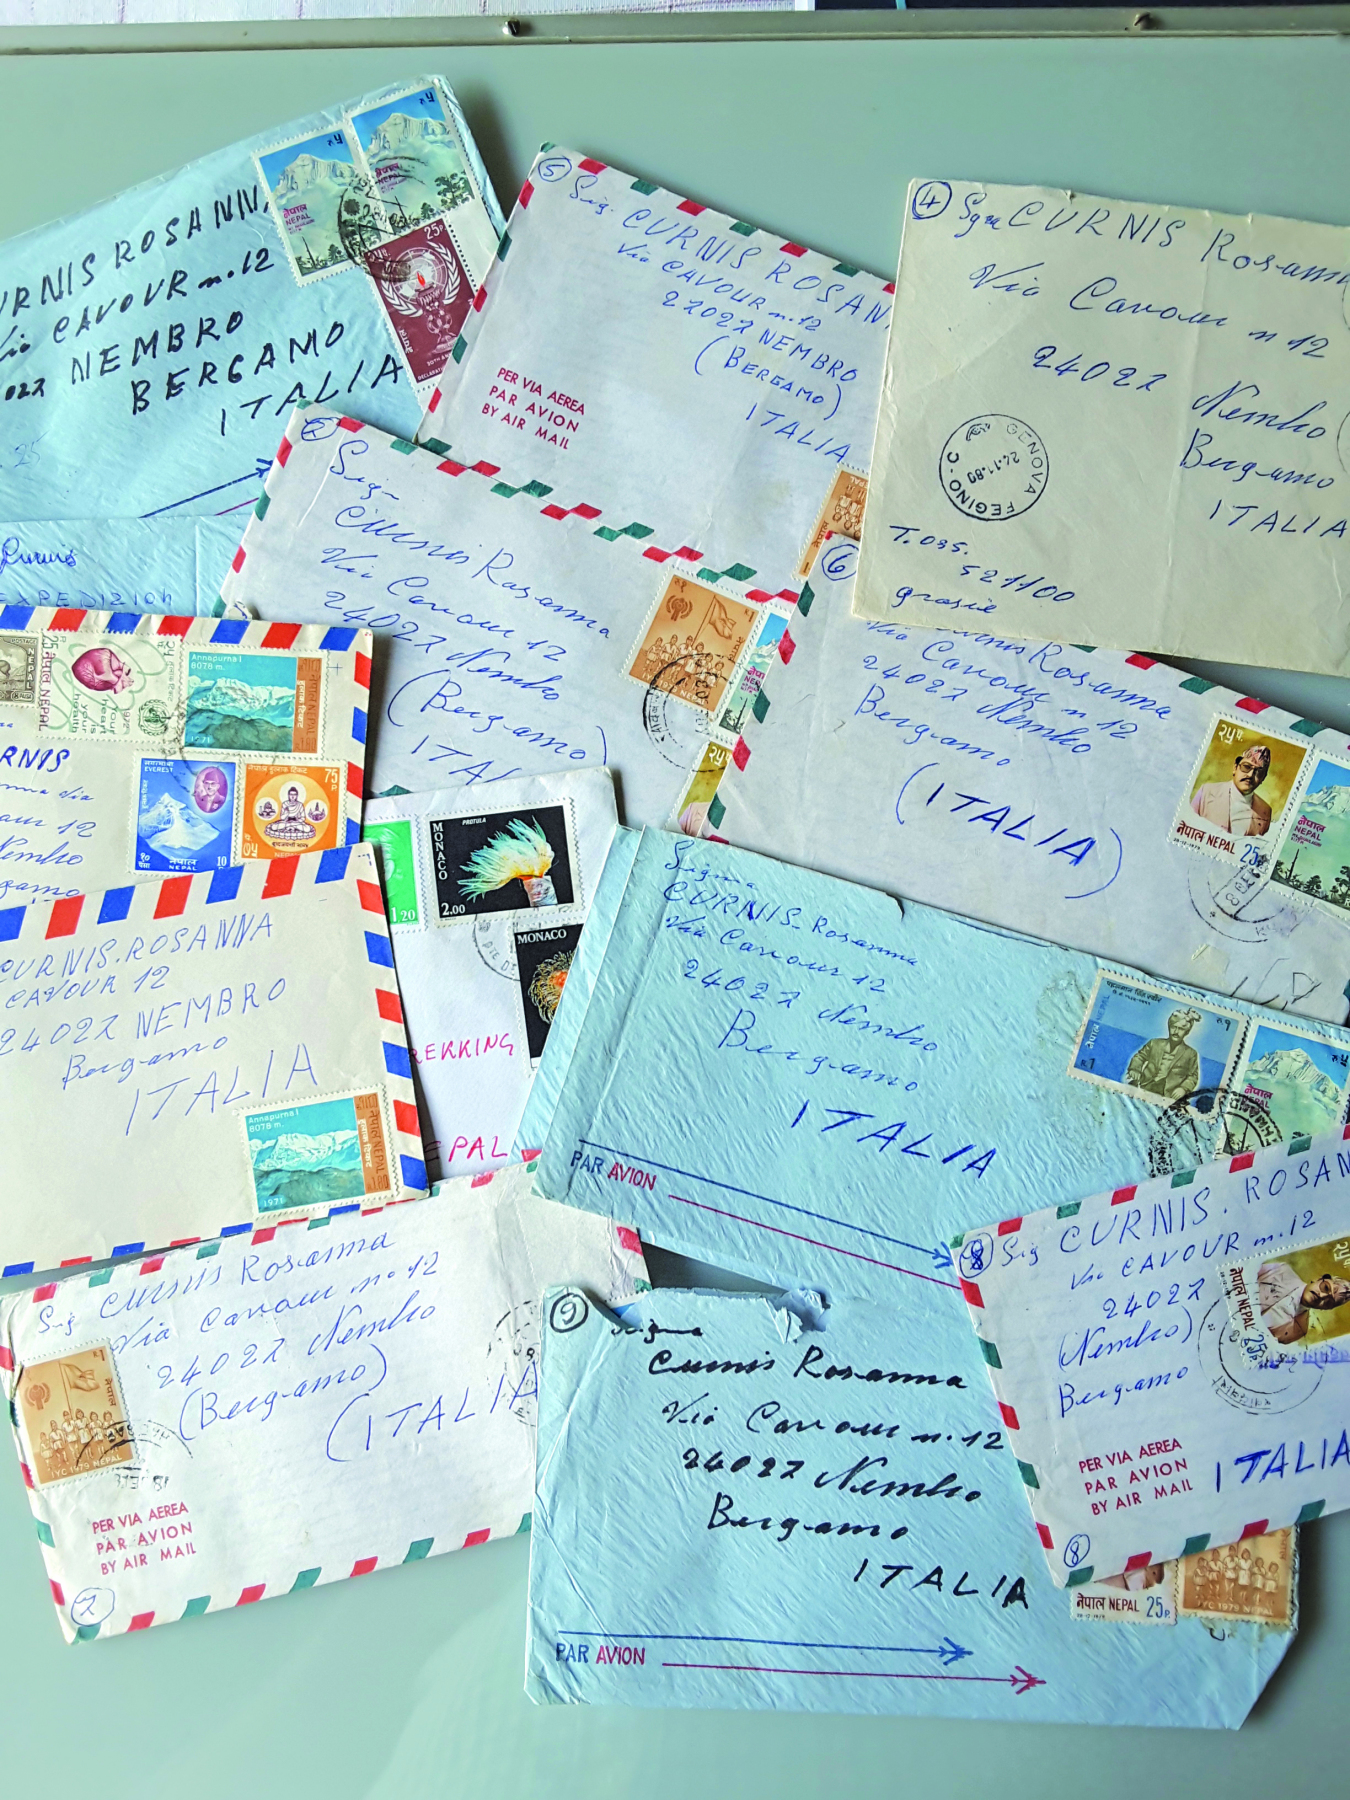 URNIS ROSANN
Via CAVOUR n. 12
027 NEMBRO
BERGAMO
ITALIA
नेपाल
NEPAL
नेपाल
NEPAL
25P
5
Sig. CURNIS ROSAN
Via CAVOUR n. 12
24027 NEMBRO
(BERGAMO)
ITALIA
PER VIA AEREA
PAR AVION
BY AIR MAIL
4
Sgra CURNIS Rosanna
Via Cavour n 12
24027 Nembro
Bergamo
ITALIA
GENOVA FEGINO-C
24.11.80
T. 035.
521100
grazie
Curnis
EXPEDIZION
2
Sigra
Curnis Rosanna
Via Cavour 12
24027 Nembro
(Bergamo)
ITA
6
Curnis Rosanna
Via Cavour n 12
24027 Nembro
Bergamo
(ITALIA)
२५ प.
नेपाल NEPAL 25P.
नेपाल
NEPAL
NEPAL
25P
नेपाल NEPAL
Your heart your health
1972
Annapurna I
8078 m.
1971
नेपाल NEPAL
EVEREST
१०
नेपाल
NEPAL
10
नेपाल हुलाक टिकट
75P
७५
URNIS
Via
Cavour 12
Nembro
gamo
MONACO
PROTULA
2,00
1,20
MONACO
REKKING
EPAL
CURNIS. ROSANNA
CAVOUR 12
24027 NEMBRO
Bergamo
ITALIA
Annapurna I
8078 m.
1971
नेपाल NEPAL
Signora
CURNIS Rosanna
Via Cavour 12
24027 Nembro
Bergamo
ITALIA
PAR AVION
नेपाल
NEPAL
Sig Curnis Rosanna
Via Cavour n° 12
24027 Nembro
(Bergamo)
(ITALIA
IYC 1979 NEPAL
PER VIA AEREA
PAR AVION
BY AIR MAIL
7
9
Curnis Rosanna
Via Cavour n. 12
24027 Nembro
Bergamo
ITALIA
PAR AVION
8
Sig CURNIS. ROSAN
Via CAVOUR n. 12
24027
(Nembro)
Bergamo
ITALIA
नेपाल NEPAL 25P.
PER VIA AEREA
PAR AVION
BY AIR MAIL
8
नेपाल NEPAL 25P.
IYC 1979 NEPAL